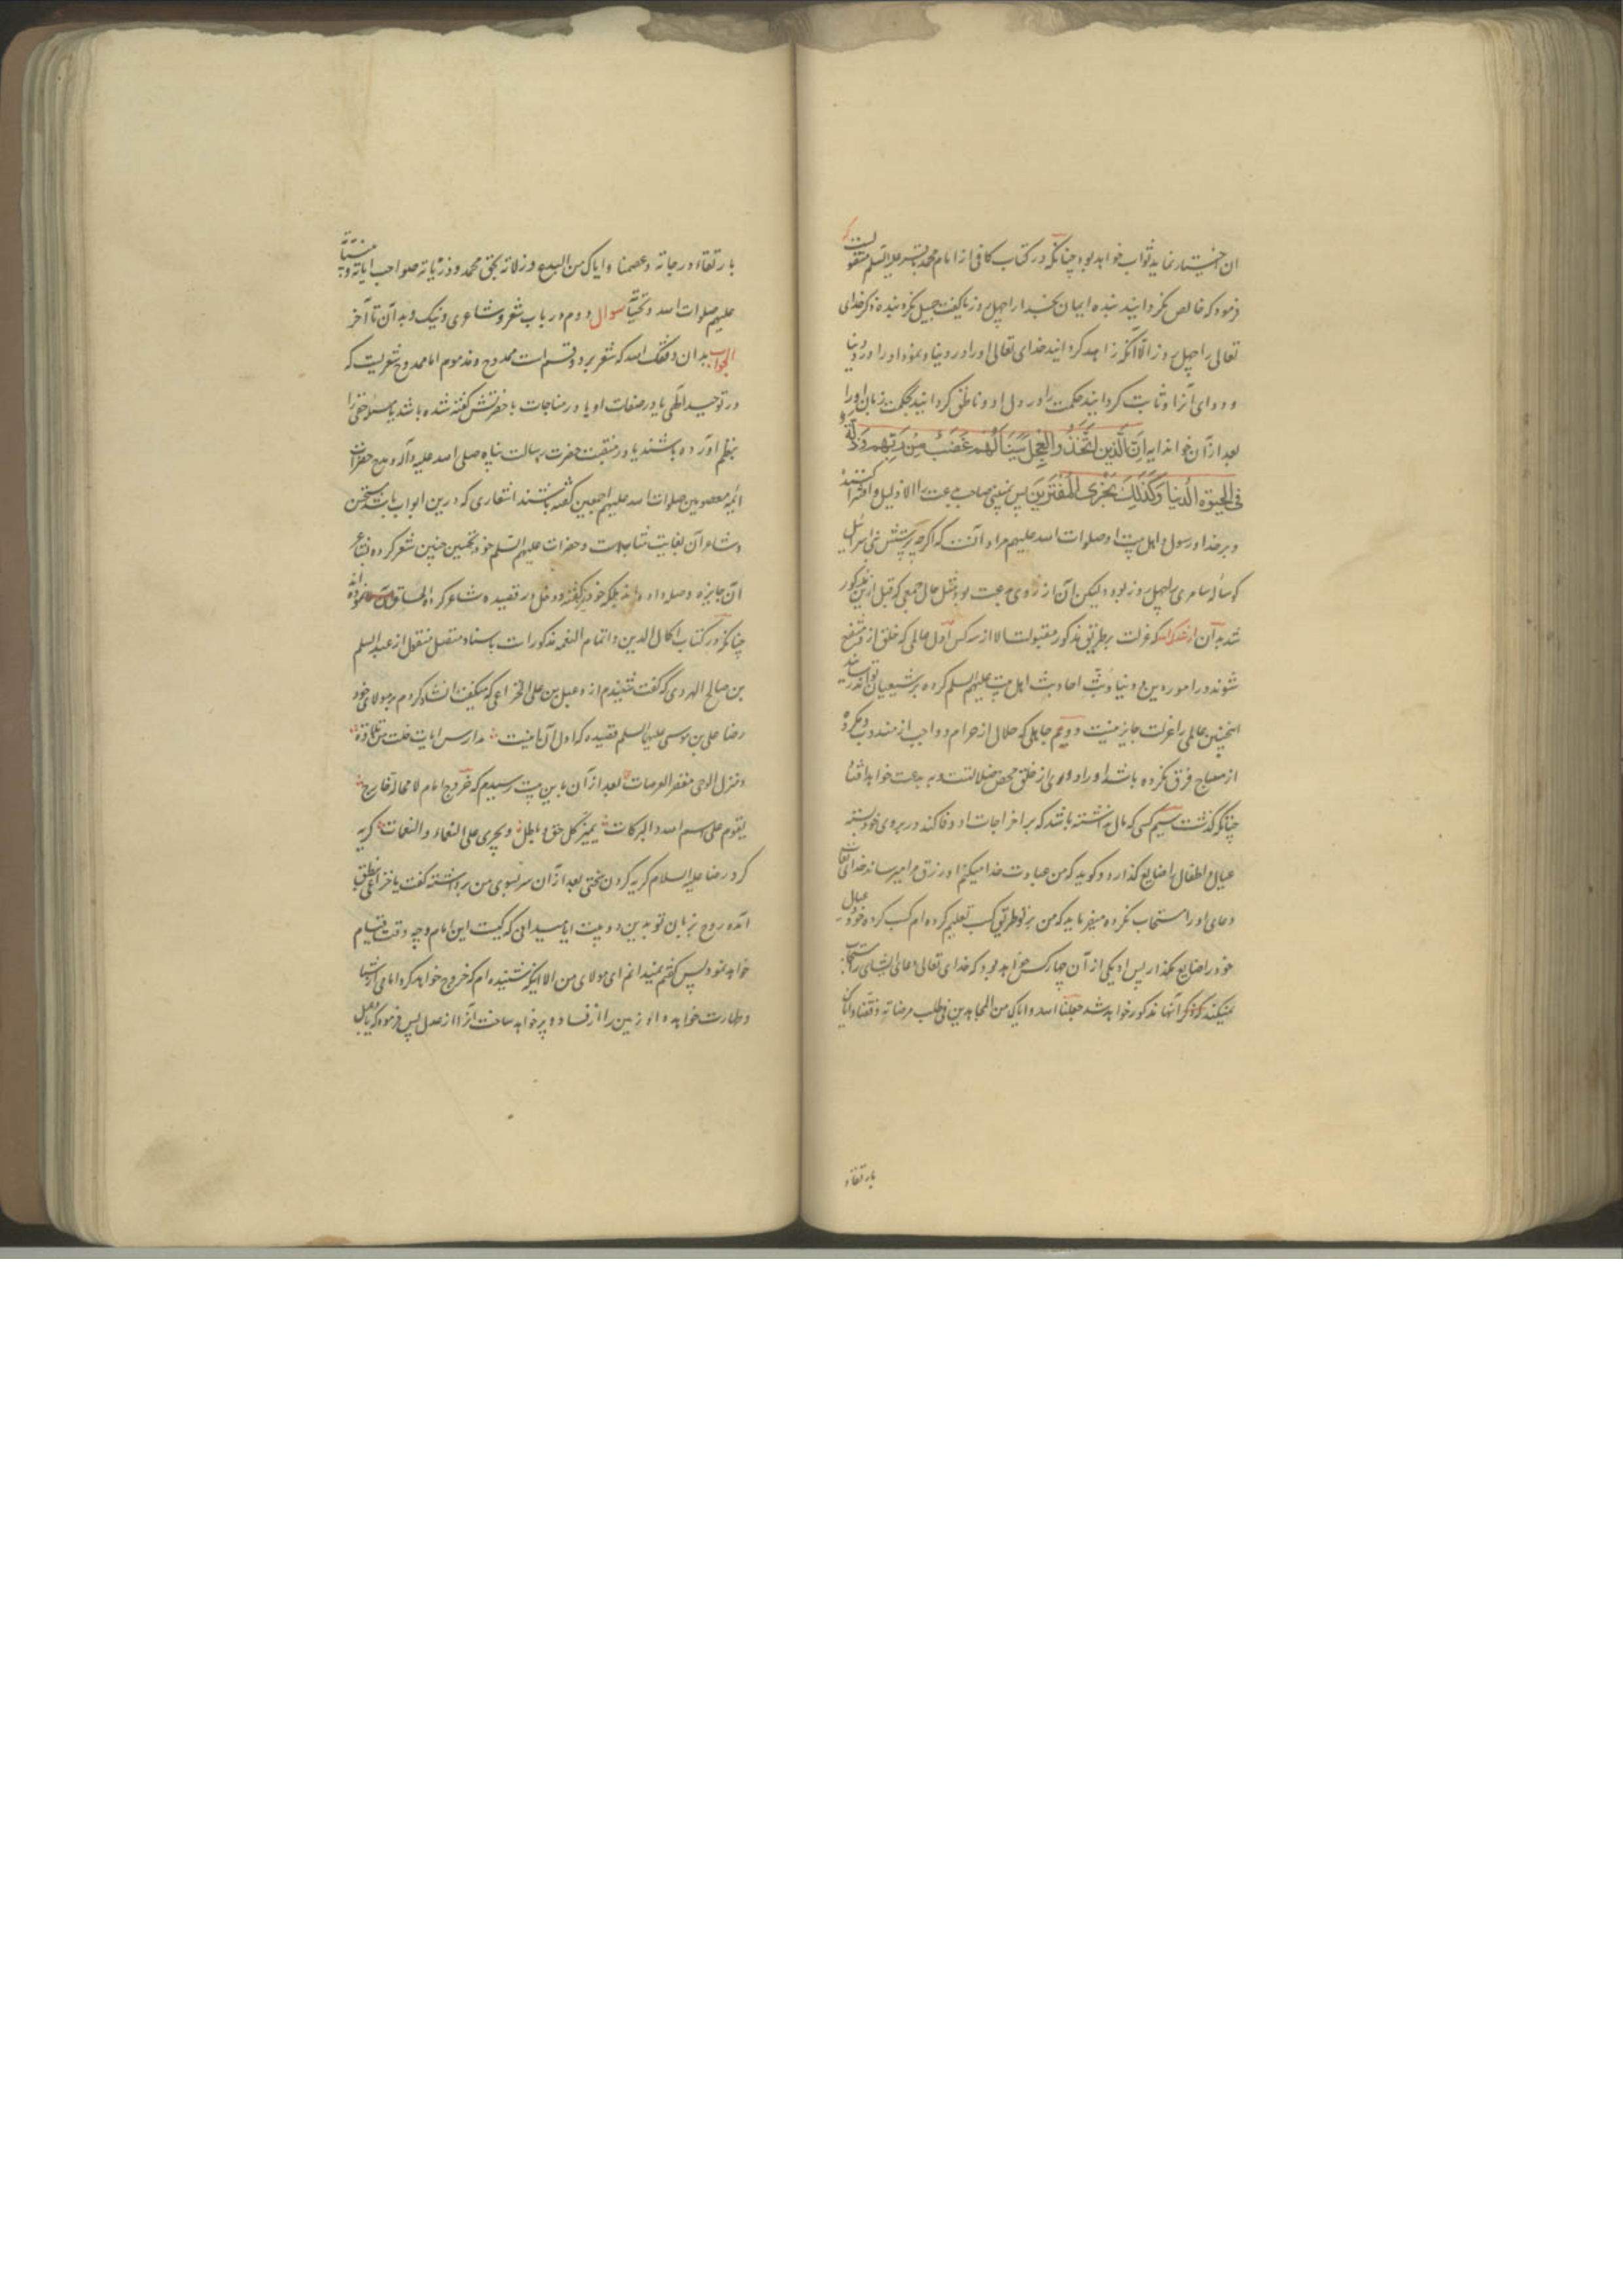 ان اختیار نماید ثواب خواهد بود چنانکه در کتاب کافی از امام محمد باقر علیه السلم منقولست که
فرمود که خالص نکردانید بنده ایمان بخدا را چهل روز یا کفت جمیل نکرد بنده ذکر خدای
تعالی را چهل روز الا آنکه زاهد کردانید خدای تعالی او را در دنیا و نمود او را درد دنیا
و دوای آنرا و ثابت کردانید حکمت را در دل او و ناطق کردانید بحکمت زبان او را
بعد از آن خواند ایه اِنَّ الَّذینَ اتَّخَذُوا العِجلَ سَیَنالُهُم غَضَبٌ مِن رَبِّهِم وَ ذِلَّةٌ
فِی الحَیوةِ الدُّنیا وَ کَذلِکَ نَجزِی المُفتَرینَ پس نبینی صاحب بدعت را الا ذلیل و افترا کننده
و بر خدا و رسول و اهل بیت او صلوات الله علیهم مراد آنست که اکرچه پرستش بنی اسرائیل
کوساله سامری را چهل روز بود و لیکن آن از روی بدعت بود مثل حال جمعی که قبل ازین مذکور
شد بدان که عزلت بطریق مذکور مقبولست الا از سه کس اول عالمی که خلق از و منتفع
شوند در امور دین و دنیا و بث احادیث اهل بیت علیهم السلم کرده بر شیعیان تواند رسانید
اینچنین عالمی را عزلت جایز نیست دویم جاهلی که حلال از حرام و واجب از مندوب و مکروه
از مباح فرق نکرده باشد او را دوری از خلق محض ضلالتست و به بدعت خواهد افتاد
چنانکه گذشت سیم کسی که مال نداشته باشد که بر اخراجات او وفا کند در بر روی خود بسته
عیال و اطفال را ضایع گذارد و کوید که من عبادت خدا میکنم او رزق مرا میرساند خدای تعالی
دعای او را مستجاب نکرده میفرماید که من بر تو طریق کسب تعلیم کرده ام کسب کرده عیال خود
خود را ضایع مکذار پس او یکی از آن چهار کس خواهد بود که خدای تعالی دعای ایشان را مستجاب
نمیکند که ذکر آنها مذکور خواهد شد جعلنا الله و ایاک من المجاهدین فی طلب مرضاته و وفقنا و ایاک
بارتقاء
بارتقاء درجاته و عصمنا و ایاک من البدع و زلاته بحق محمد و ذریاته صلواحب ایاته و بیناته
علیهم صلوات الله و تحیاته سوال دوم در باب شعر و شاعری و نیک و بد آن تا آخر
الجواب بدان وفقک الله که شعر بر دو قسم است ممدوح و مذموم اما ممدوح شعریست که
در توحید الهی یا در صفات او یا در مناجات با حضرتش کفته شده باشد یا مسئله حقی را
بنظم آورده باشند یا در منقبت حضرت رسالت پناه صلی الله علیه و آله و مدح حضرات
ائمه معصومین صلوات الله علیهم اجمعین کفته باشند اشعاری که درین ابواب باشد مستحسن
و شاعر آن بغایت مثابست و حضرات علیهم السلم خود تحسین چنین شعر کرده بشاعر
آن جایزه و صله داده اند بلکه خود نیز کفته و دخل در قصیده شاعر کرده الحاق نموده اند
چنانکه در کتاب اکمال الدین و اتمام النعمه مذکورات باسناد متصل منقول از عبد السلم
بن صالح الهروی که کفت شنیدم از دعبل بن علی الخزاعی که میکفت انشاد کردم بر مولای خود
رضا علی بن موسی علیهما السلم قصیده که اول آن اینست مدارس ایات خلت من تلاوة
و منزل الوحی مقفر العرصات بعد از آن باین بیت رسیدم که خروج امام لا محالة خارج
یقوم علی اسم الله و البرکات یمیز کل حق و باطل و یجزی علی النعماء و النقمات کریه
کرد رضا علیه السلام کریه کردن سختی بعد از آن سر بسوی من برداشته کفت یا خزاعی نطق
آمده روح بزبان تو بدین دو بیت ایا میدانی که کیست این امام و چه وقت قیام
خواهد نمود پس کفتم نمیدانم ای مولای من الا اینکه شنیده ام که خروج خواهد کرد امامی از شما
و طهارت خواهد داد زمین را از فساد و پر خواهد ساخت آنرا از عدل پس فرمود که یا دعبل